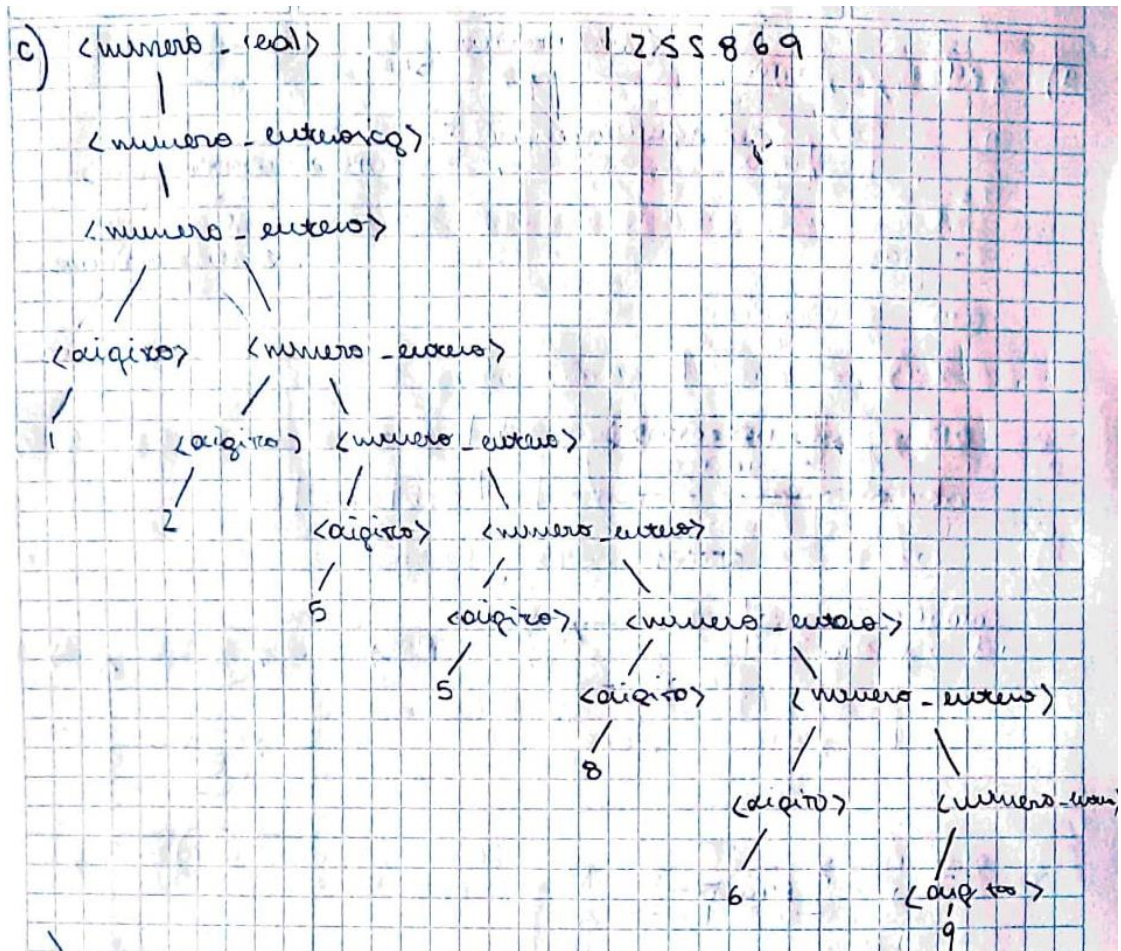 c) <numero_real> 1255869
<numero_enterosg>
<numero_entero>
<digito> <numero_entero>
1 <digito> <numero_entero>
2 <digito> <numero_entero>
5 <digito> <numero_entero>
5 <digito> <numero_entero>
8 <digito> <numero_
6 <digito>
9